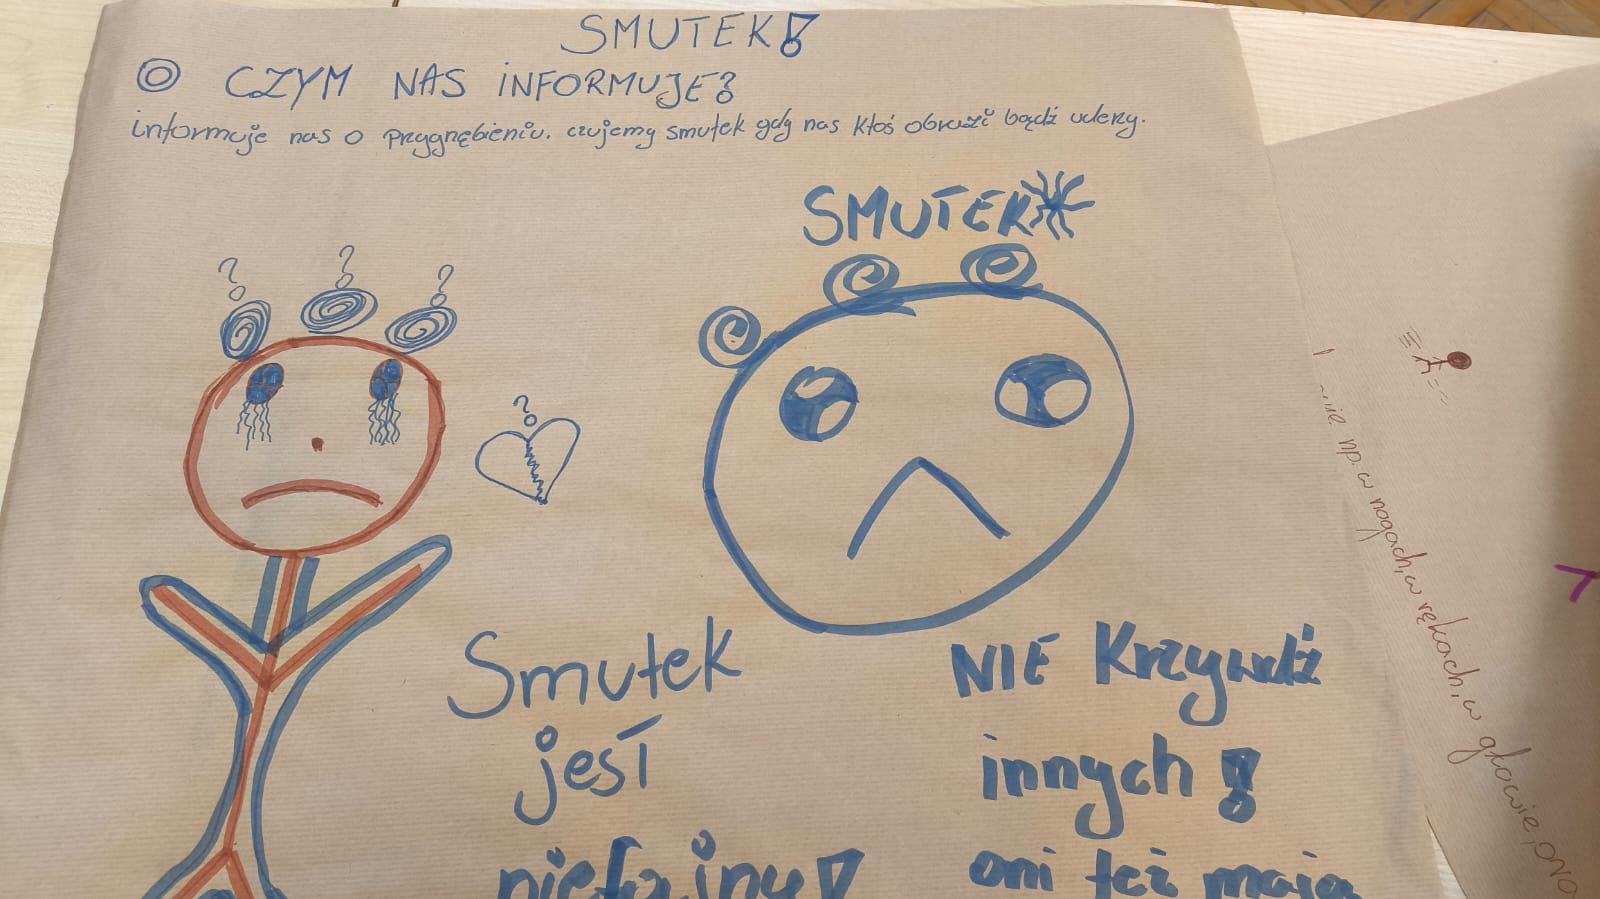 SMUTEK!
CZYM NAS INFORMUJE?
informuje nas o przygnębieniu. czujemy smutek gdy nas ktoś obrazi bądź uderzy.
SMUTEK
? ? ?
?
Smutek
jest
niefajny!
NIE Krzywdź
innych!
oni też mają
np. w nogach, w rękach, w głowie,